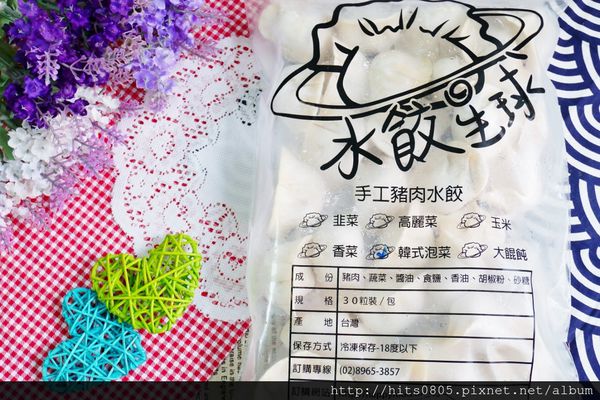 水餃星球
手工豬肉水餃
韭菜 高麗菜 玉米
香菜 韓式泡菜 大餛飩
成份 豬肉、蔬菜、醬油、食鹽、香油、胡椒粉、砂糖
規格 30粒裝/包
產地 台灣
保存方式 冷凍保存-18度以下
訂購專線 (02)8965-3857
http://hits0805.pixnet.net/album